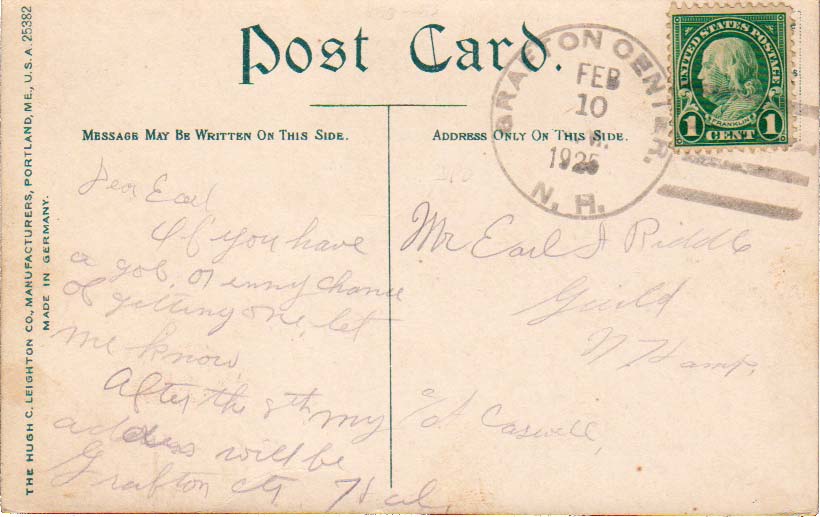 Post Card.
MESSAGE MAY BE WRITTEN ON THIS SIDE.
ADDRESS ONLY ON THIS SIDE.
THE HUGH C. LEIGHTON CO., MANUFACTURERS, PORTLAND, ME., U.S.A. 25382
MADE IN GERMANY.
GRAFTON CENTER.
FEB
10
M.
1925
N. H.
UNITED STATES POSTAGE
FRANKLIN
1 CENT 1
Dear Earl
If you have
a gob, or enny chance
of getting one, let
me know.
After the 8th my
address will be
Grafton ctr. Hal,
Mr Earl J Riddle
Guild
N Hamp,
c/o Caswell,